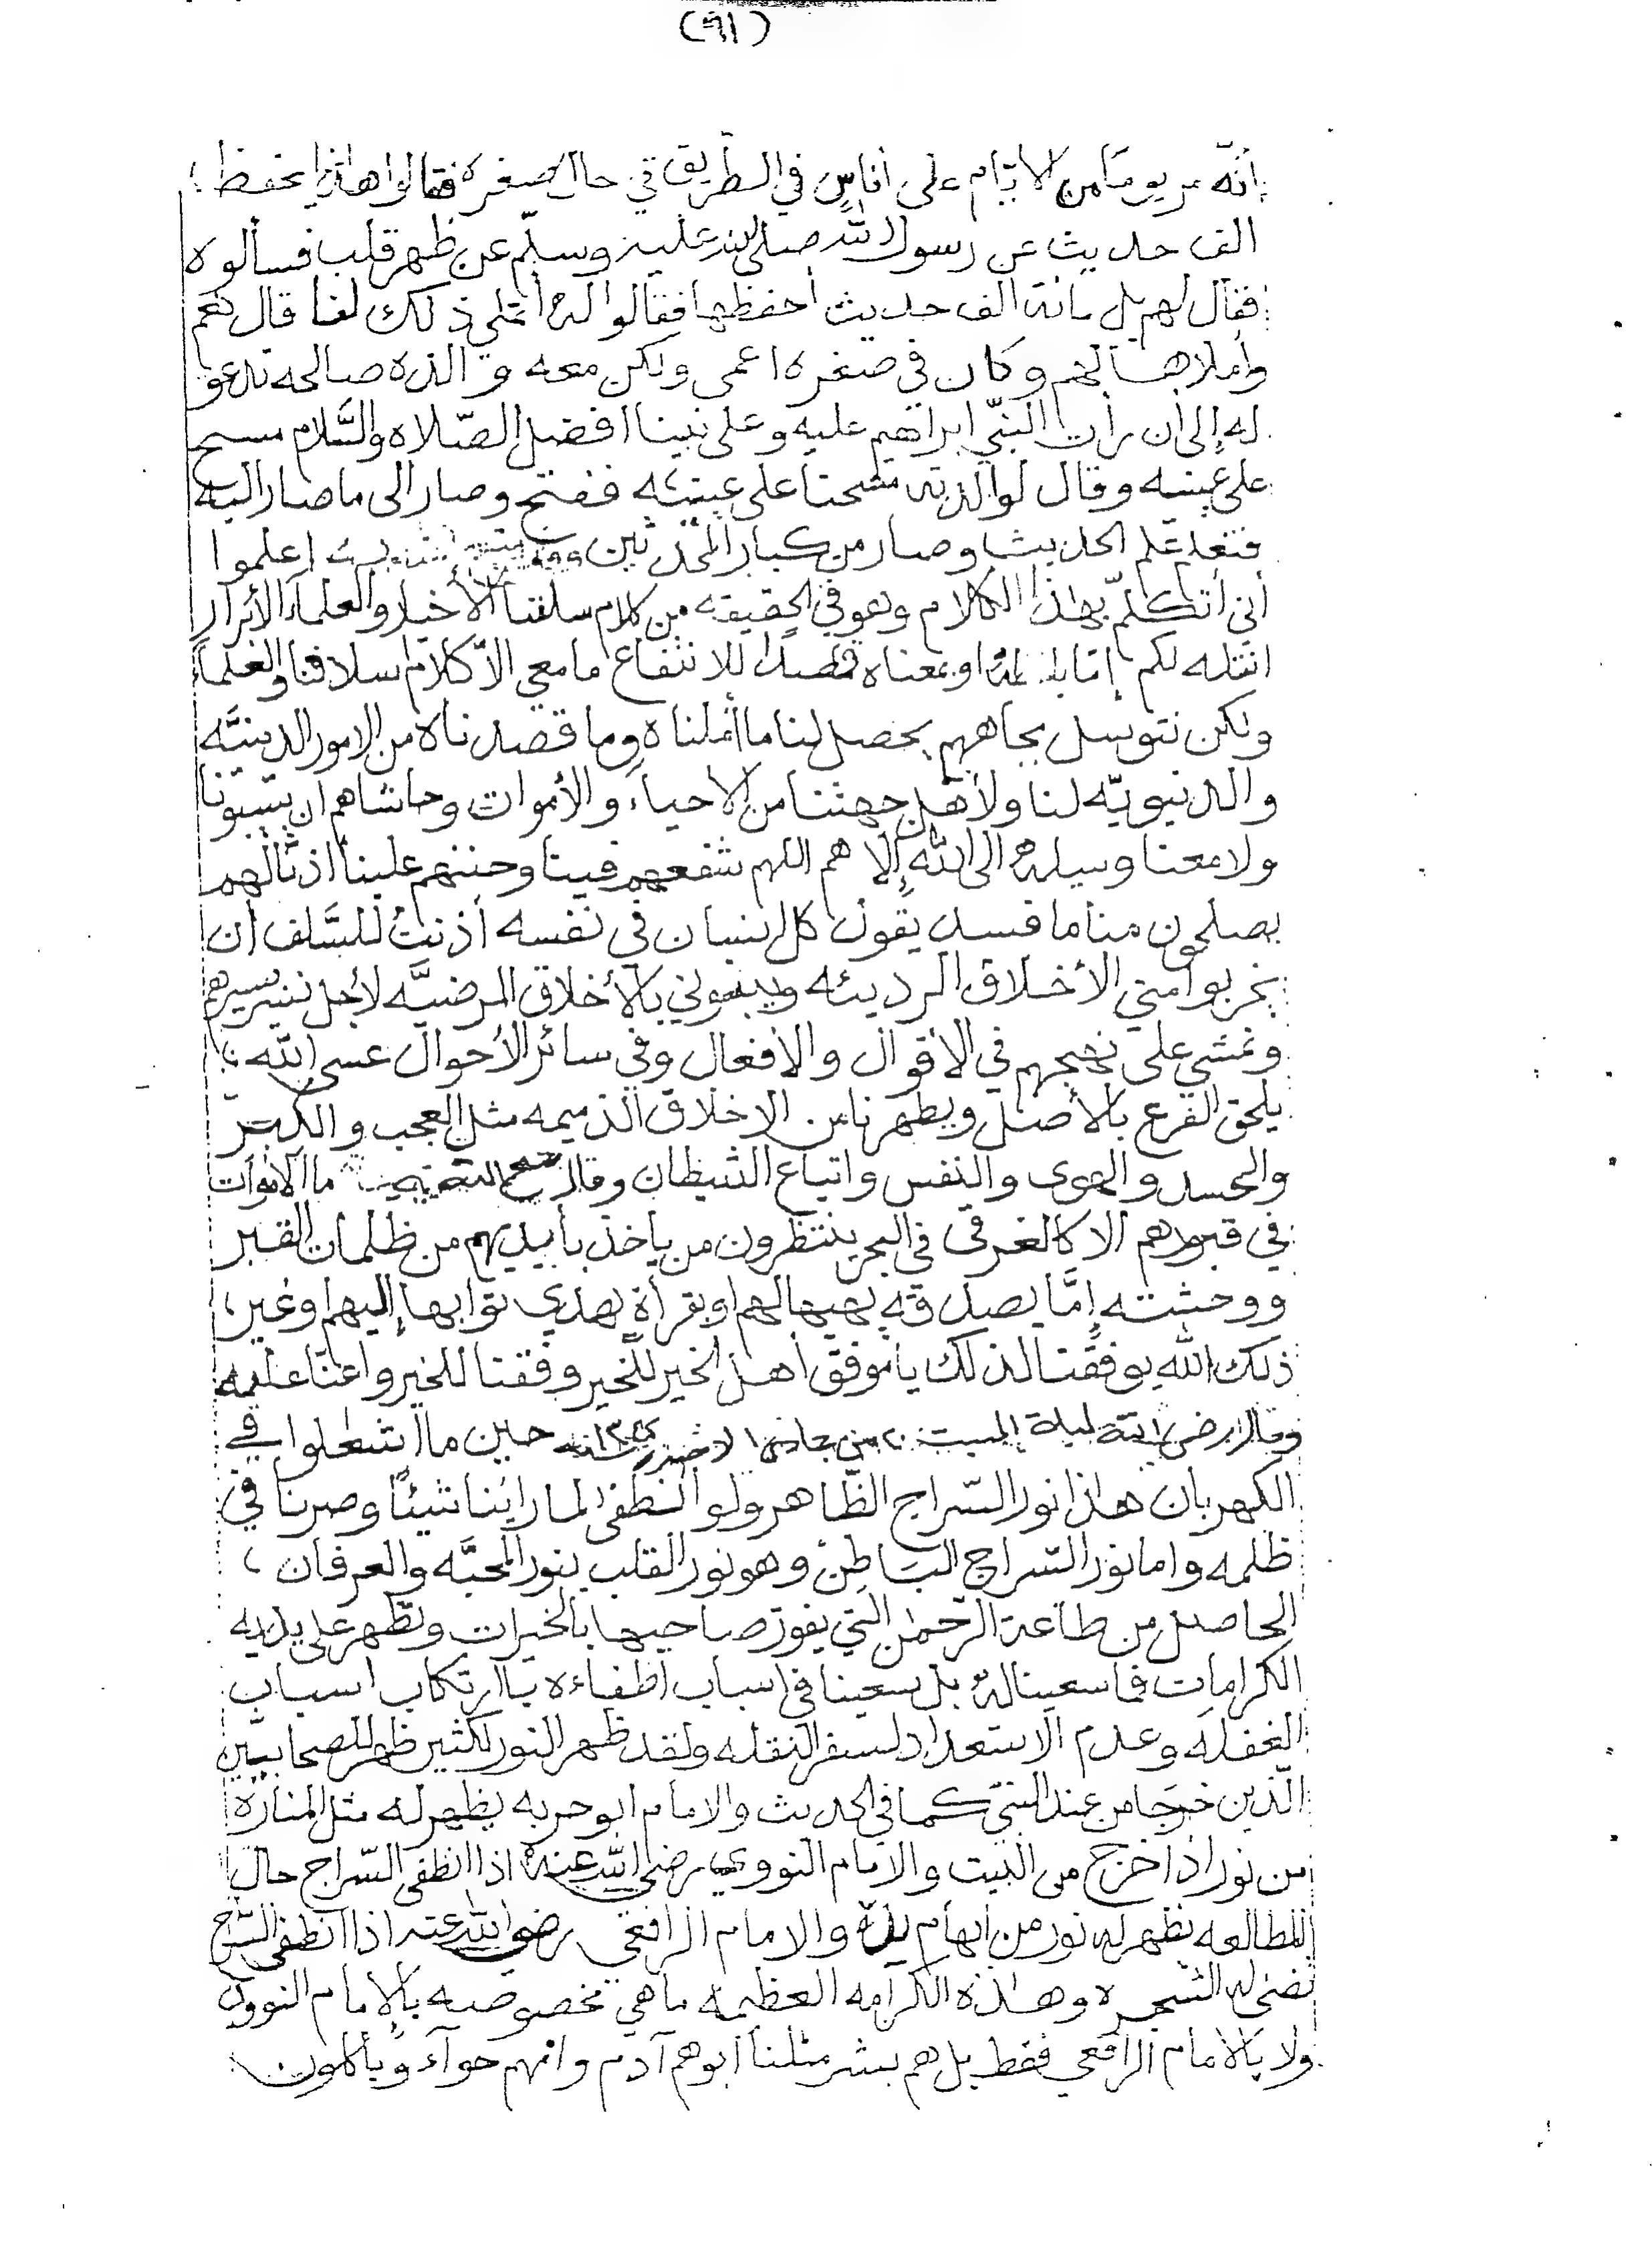 (٩١)
أنّه مر يوما من الايّام على اناسٍ في الطريق في حال صغره فقالوا هاذا يحفظ
الف حديث عن رسول اللّه صلى الله عليه وسلّم عن ظهر قلب فسألوه
فقال لهم بل مائة الف حديث أحفظها فقالوا له أتملي ذلك لنا قال نعم
وأملاها لهم وكان في صغره اعمى ولكن معه والده صالحه تدعو
له إلى ان رأت النبّي ابراهيم عليه وعلى نبينا افضل الصّلاه والسَّلام مسح
على عينيه وقال لوالدته مسحنا على عينيه ففتح وصار الى ما صار اليه
فتعلم علم الحديث وصار من كبار المحدثين اعلموا
أنى أتكلّم بهذا الكلام وهو في الحقيقه من كلام سلفنا الأخيار والعلمآء الأبرار
انقله لكم إمّا بلفظه او بمعناه قصدا للانتفاع ما معي الاّ كلام اسلافنا والعلماء
ولكن نتوسل بجاههم يحصل لنا ما أملناه وما قصدناه من الامور الدينيَّه
والدنيويّه لنا ولأهل جهتنا من الاحياء والأموات وحاشاهم ان يسيبونا
ولا معنا وسيلة الى اللّه إلا هم اللهم شفعهم فينا وحننهم علينا أذنّا لهم
يصلحون منا ما فسد يقول كل انسان في نفسه أذنتُ للسَّلف أن
يخربوا مني الأخلاق الرديئه ويبنوني بالأخلاق المرضيَّه لأجل نسير بسيرهم
ونمشي على نهجهم في الاقوال والافعال وفي سائر الأحوال عسى الله
يلحق الفرع بالأصل ويطهرنا من الاخلاق الذميمه مثل العجب والكبر
والحسد والهوى والنفس واتباع الشيطان وقال ما الاموات
في قبورهم الا كالغرقى في البحر ينتظرون من يأخذ بأيديهم من ظلمات القبر
ووحشته إمَّا بصدقه يهبها لهم او بقرأة يهدي ثوابها إليهم او غير
ذلك الله يوفقنا لذلك يا موفق أهل الخير للخير وفقنا للخير واعنّا عليه
وقال رضي الله عنه ليلة السبت ٢٠ من جمادى الاخر سنه حين ما اشعلوا في
الكهربان هاذا نور السّراج الظّاهر ولو انطفى لما رأينا شيئًا وصرنا في
ظلمه واما نور السّراج البَاطِنْ وهو نور القلب بنور المحبَّه والعرفان
الحاصل من طاعة الرّحمٰن التي يفوز صاحبها بالخيرات وتظهر على يديه
الكرامات فما سعينا له بل سعينا في اسباب اطفاءه باارتكاب اسباب
الغفلَه وعدم الاستعداد لسفر النقله ولقد ظهر النور لكثير ظهر للصحابيّين
الّذين خرجَا من عند النبّي كما في الحديث والامام ابو حربه يظهر له مثل المنارة
من نور اذا خرج من البيت والامام النووي رضي الله عنه اذا انطفى السّراج حال
المطالعه يظهر له نور من إبهام يده والامام الرافعي رضي الله عنه اذا انطفى السّراج
تضئ له الشجره وهٰذه الكرامه العظيمه ما هي مخصوصه بالامام النووي
ولا بالامام الرافعي فقط بل هم بشر مثلنا أبوهم آدم وامهم حوآء ويأكلون